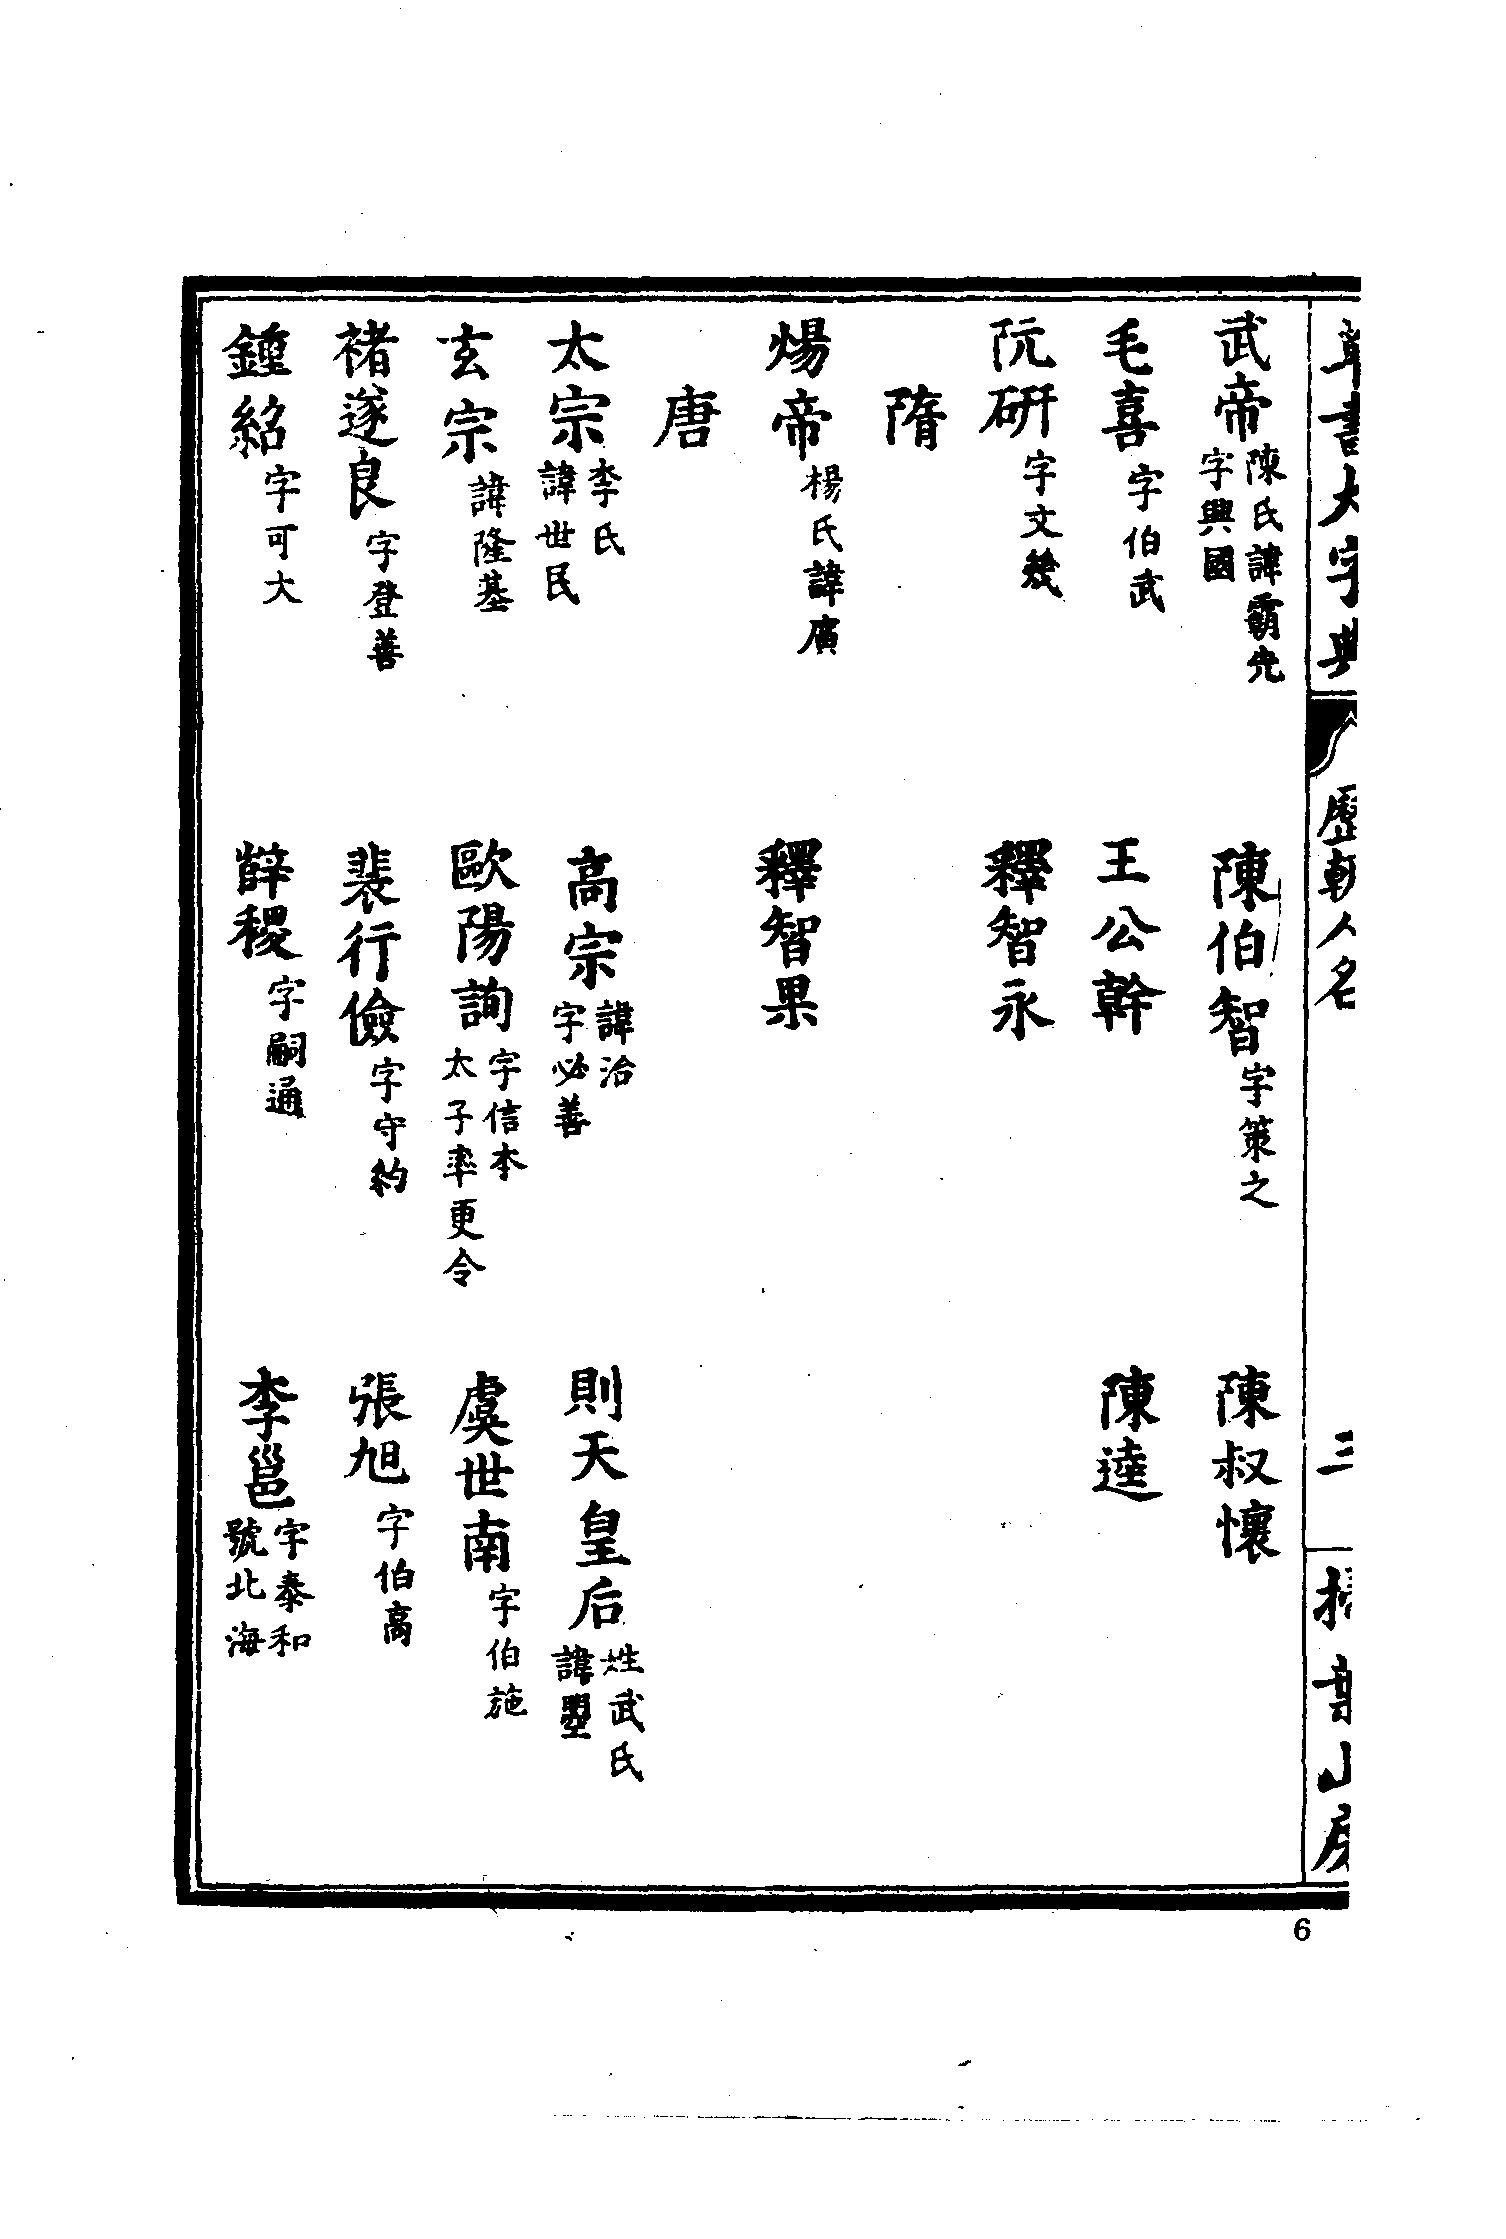 草書大字典 歷朝人名 三 掃葉山房
武帝 陳氏諱霸先 字興國 陳伯智 字策之 陳叔懷
毛喜 字伯武 王公幹 陳逵
阮研 字文幾 釋智永
隋
煬帝 楊氏諱廣 釋智果
唐
太宗 李氏 諱世民 高宗 諱治 字必善 則天皇后 姓武氏 諱曌
玄宗 諱隆基 歐陽詢 字信本 太子率更令 虞世南 字伯施
褚遂良 字登善 裴行儉 字守約 張旭 字伯高
鍾紹 字可大 薛稷 字嗣通 李邕 字泰和 號北海
6